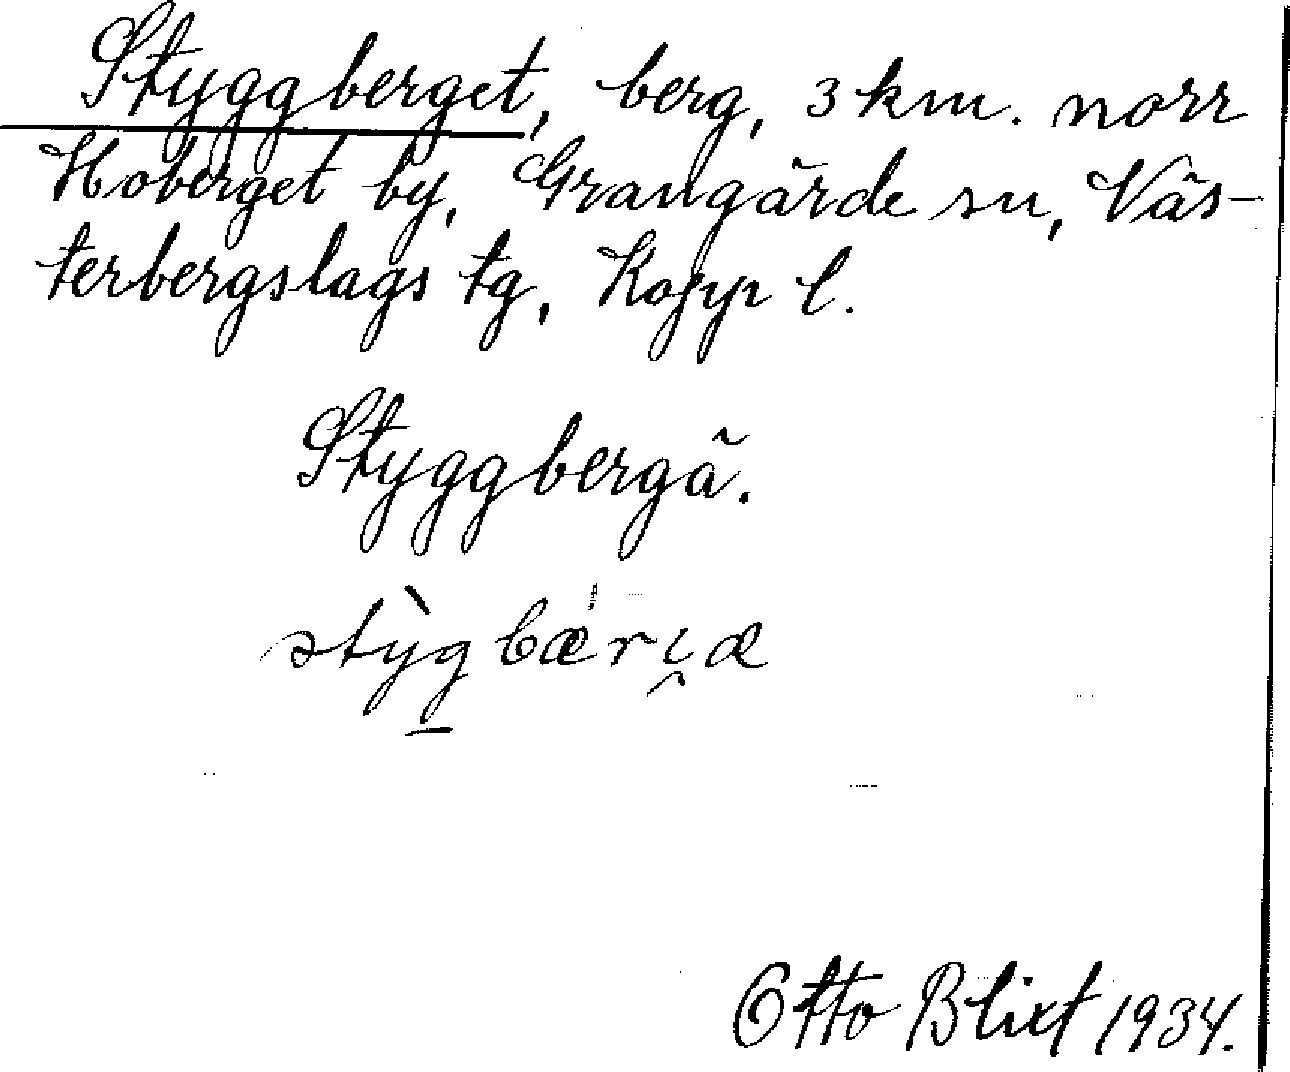 Styggberget, berg, 3 km. norr
Hoberget by, Grangärde sn, Väs-
terbergslags tg, Kopp l.
Styggbergä.
stỳgbæ̀rıæ
Otto Blixt 1934.